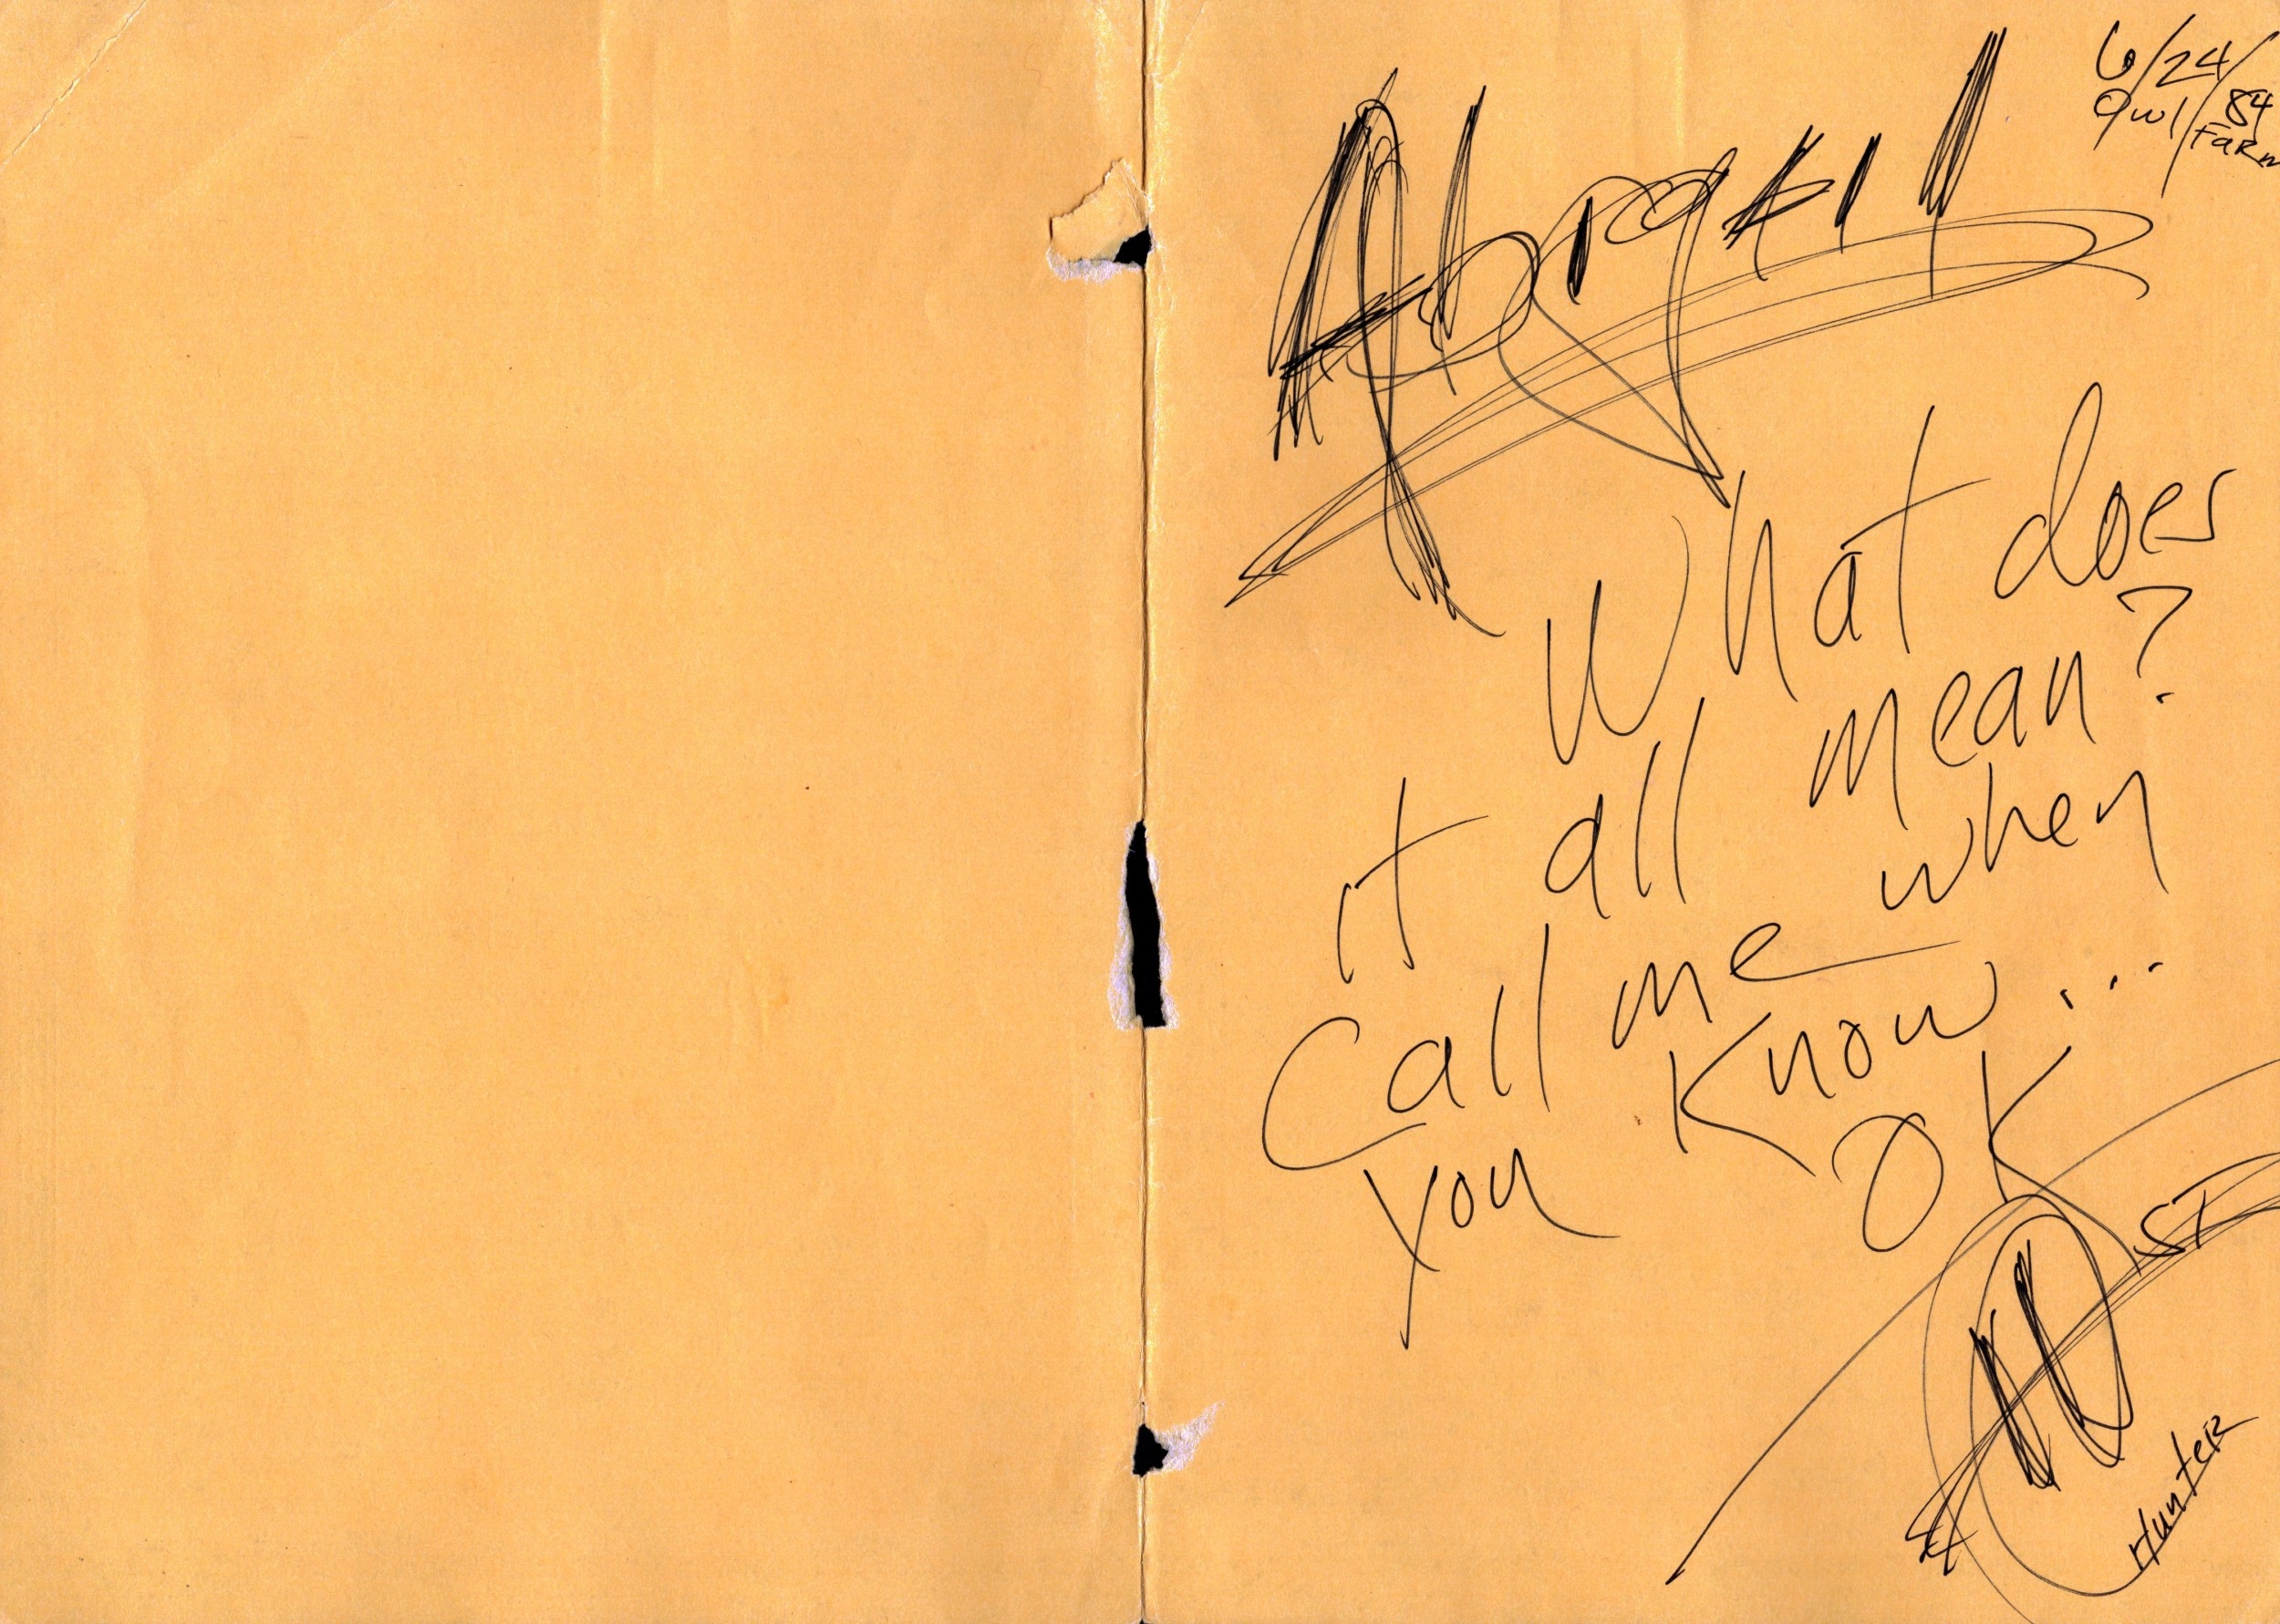 6/24/84
Owl Farm
Abigail
What does
it all mean?
Call me when
you Know...
OK
HST
Hunter